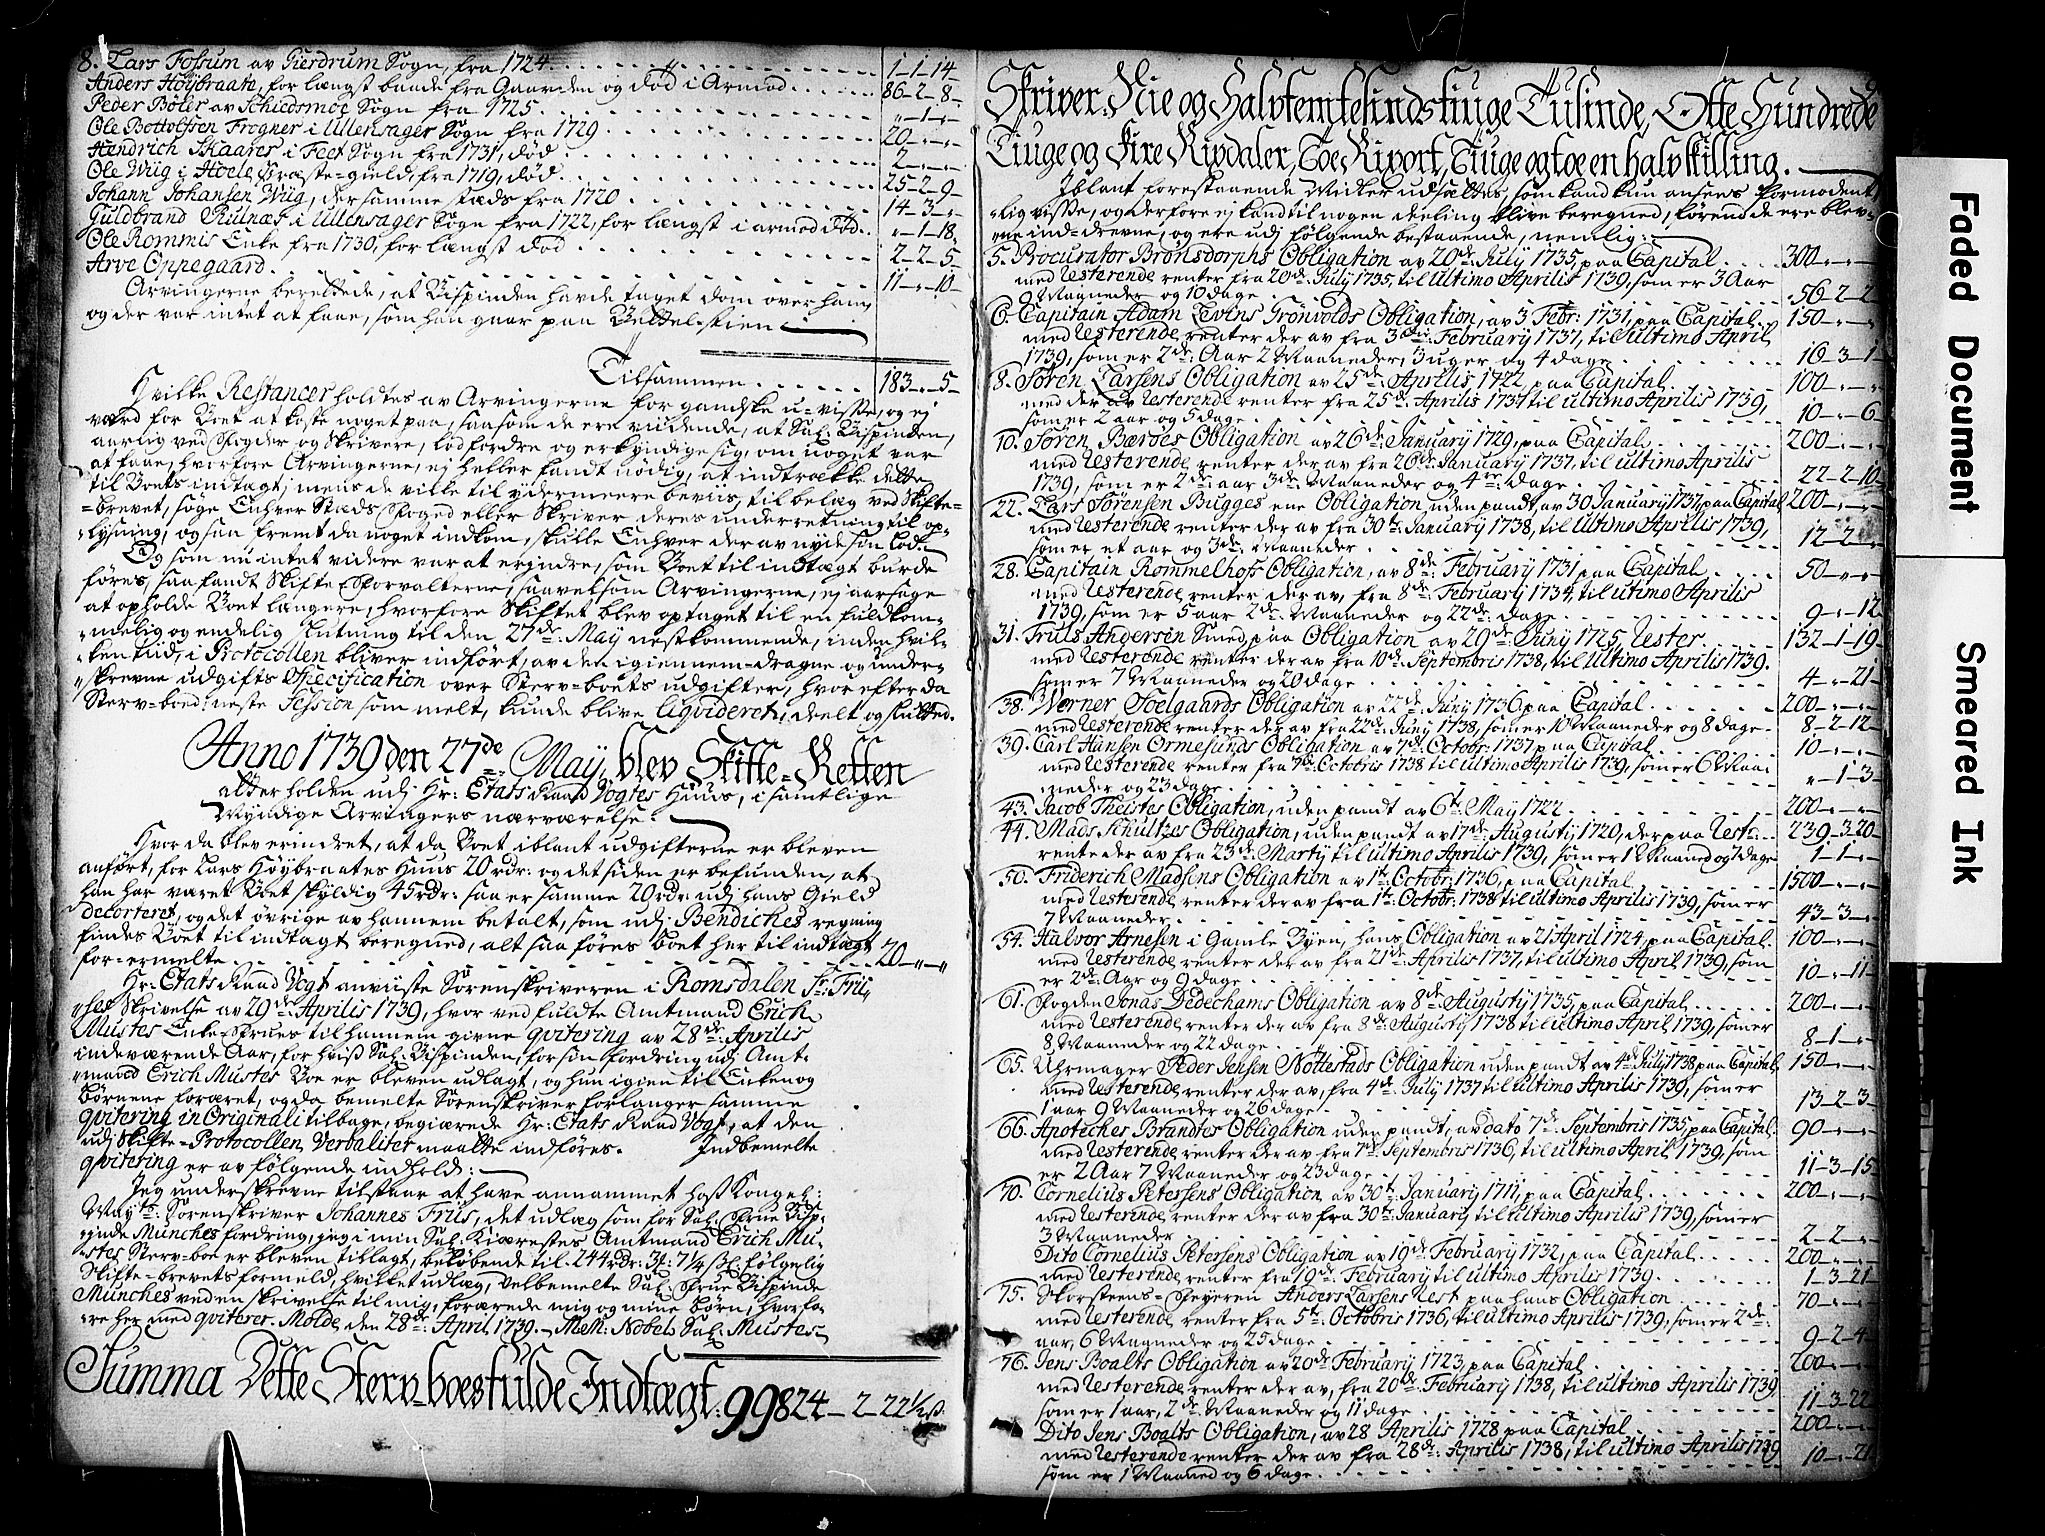 8. Lars Fossum av Gierdrum Sogn, fra 1724 . . . 1-1-14-
Anders Høÿbraate, for længst baade fra Gaarden og død i Armod . . . 86-2-8-
Peder Böler av Schiedsmoe Sogn fra 1725 . . . "-1-"
Ole Bottolfsen Frogner i Ullensager Sogn fra 1729 . . . 20-"-"
Hendrich Skaarer i Feet Sogn fra 1731, død . . . 2-"-"
Ole Wiig i Hoele Præste-gield, fra 1719, død . . . 25-2-9-
Johann Johansen Wiig, der samme stæds fra 1720 . . . 14-3-"-
Guldbrand Kulnæs i Ullensager Sogn fra 1722, for længst i armod død . . "-1-18,
Ole Rommis Enke fra 1730, for længst død . . . 2-2-5-
Arve Oppegaard . . . 11-"-10-
Arvingerne berettede, at Bispinden havde taget dom over ham,
og der var intet at faae, som han gaar paa Bettel-stien
Tilsammen . . . 183-"-5-
Hvilke Restancer holdtes av Arvingerne for gandske u-visse, og ej
værd for Boet at koste noget paa, saasom de ere vidende, at Sal: Bispinden,
aarlig ved Foger og Skrivere, lod fordre og erkyndige sig, om noget var
at faae, hvorfore Arvingerne, ej heller fandt nødig, at indtrække dette
til Boets indtægt, mens de ville til ydermeere beviis, til belæg ved Skifte-
-brevet, søge Enhver Stæds Foged eller Skriver deres underretning til op-
-lysning, og saa fremt da noget indkom, skulle Enhver der av nyde sin lod.
Og som nu intet videre var at erindre, som Boet til indtægt burde
føres, saa fandt Skifte Forvalterne, saavelsom Arvingerne, ej aarsage
at opholde Boet længere, hvorfore Skiftet blev optaget til en fuldkom-
-melig og endelig slutning til den 27de: Maÿ nestkommende, inden hvil-
-ken tiid, i Protocollen bliver indført, av den igiennem-dragne og under-
-skrevne udgifts Specification over Sterv-boets udgifter, hvor efter da
Sterv-boed: neste Session som melt, kunde blive liqvideret, deelt og slutted.
Anno 1739 den 27de Maÿ, blev Skifte-Retten
atter holden udj Hr: Etats Raad Vogtes Huus, i samtlige
Myndige Arvingers nærværelse.
Hvor da blev erindret, at da Boet iblant udgifterne er bleven
anført, for Lars Høÿbraates Huus 20 rdr: og det siden er befunden, at
han har været Boet skyldig 45 rdr: saa er samme 20 rdr: udj hans Gield
decorteret, og det øvrige av hannem betalt, som udj Bendiches regning
findes Boet til indtægt beregned, alt saa føres Boet her til indtægt
for-ermelte . . . 20-"-"
Hr: Etats Raad Vogt anviiste Sorenskriveren i Romsdalen Sr: Fri-
-ses Skrivelse av 29de: Aprilis 1739, hvor ved fuldte Amtmand Erich
Mustes Enke-Frues til hannem givne qvitering av 28de: Aprilis
indeværende Aar, for hviß Sal: Bispinden, for sin fordring udj Amt-
-mand Erich Mustes Boe er bleven udlagt, og hun igien til Enken og
Børnene foræret, og da bemelte Sorenskriver forlanger samme
qvitering in Originali tilbage, begiærede Hr: Etats Raad Vogt, at den
udj Skifte-Protocollen Verbaliter maatte indføres. Indbemelte
qvitering er av følgende indhold:
Jeg underskrevne tilstaar at have annammet hoß Kongel:
Maÿts: Sorenskriver Johannes Friis, det udlæg som for Sal: Frue Bisp-
-inde Munches fordring, jeg i min Sal: Kiærestes Amtmand Erich Mu-
-stes Sterv-boe er bleven tillagt, beløbende til 244 rdr: 3 ½: 7 1/4 ß: følgelig
Skifte-brevets formeld, hvilket udlæg, Velbemelte Sal: Frue Bispinde
Munches ved en skrivelse til mig, forærede mig og mine børn, hvorfo-
-re her med qviterer. Molde den 28de: April 1739. M: M: Nobel Sal: Mustes
Summa Dette Sterv-boes fulde Indtægt: 99824-2-22½ ß.
Skriver: Nie og Halvfemtesindstiuge Tusinde, Otte Hundrede
Tiuge og Fire Rixdaler, Toe Rixort, Tiuge og toe en halv skilling.
Iblant forestaaende Midler udsættes, som kand kun ansees Formodent-
-lig visse, og derfore ej kand til nogen deeling blive beregned, førend de ere blev-
-ne ind-drevne, og ere udj følgende bestaaende, nemlig:
5. Procurator Brønsdorphs Obligation av 20de: Julÿ 1735, paa Capital . . . 300-"-"
med Resterende renter fra 20de: Julÿ 1735, til ultimo Aprilis 1739, som er 3 Aar
9 Maaneder og 10 dage . . . 56-2-2
6. Capitain Adam Levins Grönvolds Obligation, av 3 Febr: 1731, paa Capital . . 150-"-"
med Resterende renter der av fra 3de: Februarÿ 1737, til ultimo April
1739, som er 2de: Aar 2 Maaneder, 3 uger og 4 dage . . . 16-3-1-
8. Søren Larsens Obligation av 25de: Aprilis 1722, paa Capital . . . 100-"-"
med der av Resterende renter fra 25de: Aprilis 1737 til ultimo Aprilis 1739,
som er 2 aar og 5 dage . . . 10-"-6-
10. Søren Barøes Obligation av 26de: Januarÿ 1729, paa Capital . . . 200-"-"
med Resterende renter der av fra 26de: Januarÿ 1737, til ultimo Aprilis
1739, som er 2de: aar 3de: Maaneder og 4re: dage . . . 22-2-10-
22. Lars Sørensen Bugges ene Obligation, uden pandt, av 30 Januarÿ 1737, paa Capital 200-"-"
med Resterende renter der av fra 30te: Januarÿ 1738, til ultimo Aprilis 1739,
som er et aar og 3de: Maaneder . . . 12-2-"
28. Capitain Rommelhofs Obligation, av 8de: Februarÿ 1731 paa Capital . . . 50-"-"
med Resterende renter der av, fra 8de: Februarÿ 1734, til ultimo Aprilis
1739, som er 5 aar 2de: Maaneder og 22de: dage . . . 9-"-12
31. Truls Andersen Smed, paa Obligation av 29de: Junÿ 1725, Rester . . . 132-1-19-
med Resterende renter der av fra 10de: Septembris 1738, til Ultimo Aprilis 1739.
som er 7 Maaneder og 20 dage . . . 4-"-21-
38. Werner Soelgaards Obligation av 22de: Junÿ 1736, paa Capital . . . 200-"-"
med Resterende renter der av fra 22de: Junÿ 1738, som er 10 Maaneder og 8 dage . 8-2-12-
39. Carl Hansen Ormesunds Obligation av 7de: Octobr: 1737 paa Capital . . . 10-"-"
med Resterende renter fra 7de: Octobris 1738 til ultimo Aprilis 1739, som er 6 Maa-
neder og 23 dage . . . "-1-3-
43. Jacob Theistes Obligation, uden pandt av 6te: Maÿ 1722 . . . 200-"-"
44. Mads Schultzes Obligation, uden pandt av 17de: Augustÿ 1720, der paa Rest: . . 239-3-20-
rente der av fra 23de: Martÿ til ultimo Aprilis 1739, som er 1 Maaned og 7 dage 1-1-"-
50. Friderich Madsens Obligation av 1te: Octobr: 1736, paa Capital . . . 1500-"-"
med Resterende renter der av fra 1te: Octobr: 1738 til ultimo Aprilis 1739, som er
7 Maaneder . . . 43-3-"
54. Halvor Arnesen i Gamle Byen, hans Obligation av 21 April 1724, paa Capital . 100-"-"
med Resterende renter der av fra 21de: Aprilis 1737, til ultimo April 1739, som
er 2de: Aar og 9 dage . . . 10-"-11-
61. Fogden Jonas Dedechams Obligation av 8de: Augustÿ 1735, paa Capital . . . 200-"-"
med Resterende renter der av fra 8de: Augustÿ 1738 til ultimo April 1739, som er
8 Maaneder og 22 dage . . . 8-1-"
65. Uhrmager Peder Jensen Nøttestads Obligation uden pandt av 4de Julÿ 1738 paa Capital 150-"-"
med Resterende renter der av, fra 4de: Julÿ 1737 til ultimo Aprilis 1739, som er
1 aar 9 Maaneder og 26 dage . . . 13-2-3-
66. Apotecher Brandtes Obligation uden pandt, av dato 7de: Septembris 1735, paa Capital: 90-"-"
med Resterende renter der av fra 7de: Septembris 1736, til ultimo April 1739, som
er 2 Aar 7 Maaneder og 23 dage . . . 11-3-15
70. Cornelius Petersens Obligation, av 30te: Januarÿ 1711, paa Capital . . . 200-"-"
med Resterende renter der av fra 30te: Januarÿ til ultimo Aprilis 1739, som er
3 Maaneder . . . 2-2-"
Dito Cornelius Petersens Obligation av 19de: Februarÿ 1732, paa Capital . . . 200-"-"
med Resterende renter fra 19de: Februarÿ til ultimo Aprilis 1739 . . . 1-3-21-
75. Skorsteens-Feÿeren Anders Larsens Rest paa hans Obligation . . . 70-"-"
med Resterende renter fra 5te: Octobris 1736, til ultimo Aprilis 1739, som er 2de:
aar, 6 Maaneder og 25 dage . . . 9-2-4
76. Jens Boalts Obligation av 20de Februarÿ 1723, paa Capital . . . 200-"-"
med Resterende renter der av, fra 20de: Februarÿ 1738, til ultimo Aprilis 1739,
som er 1 aar, 2de: Maaneder og 11 dage . . . 11-3-22
Dito Jens Boalts Obligation, av 28 Aprilis 1728 paa Capital . . . 200-"-"
med Resterende renter der av fra 28de: Aprilis 1738, til ultimo Aprilis 1739
som er 1 Maaned og 6 dage . . . 10-"-21
Faded Document
Smeared Ink